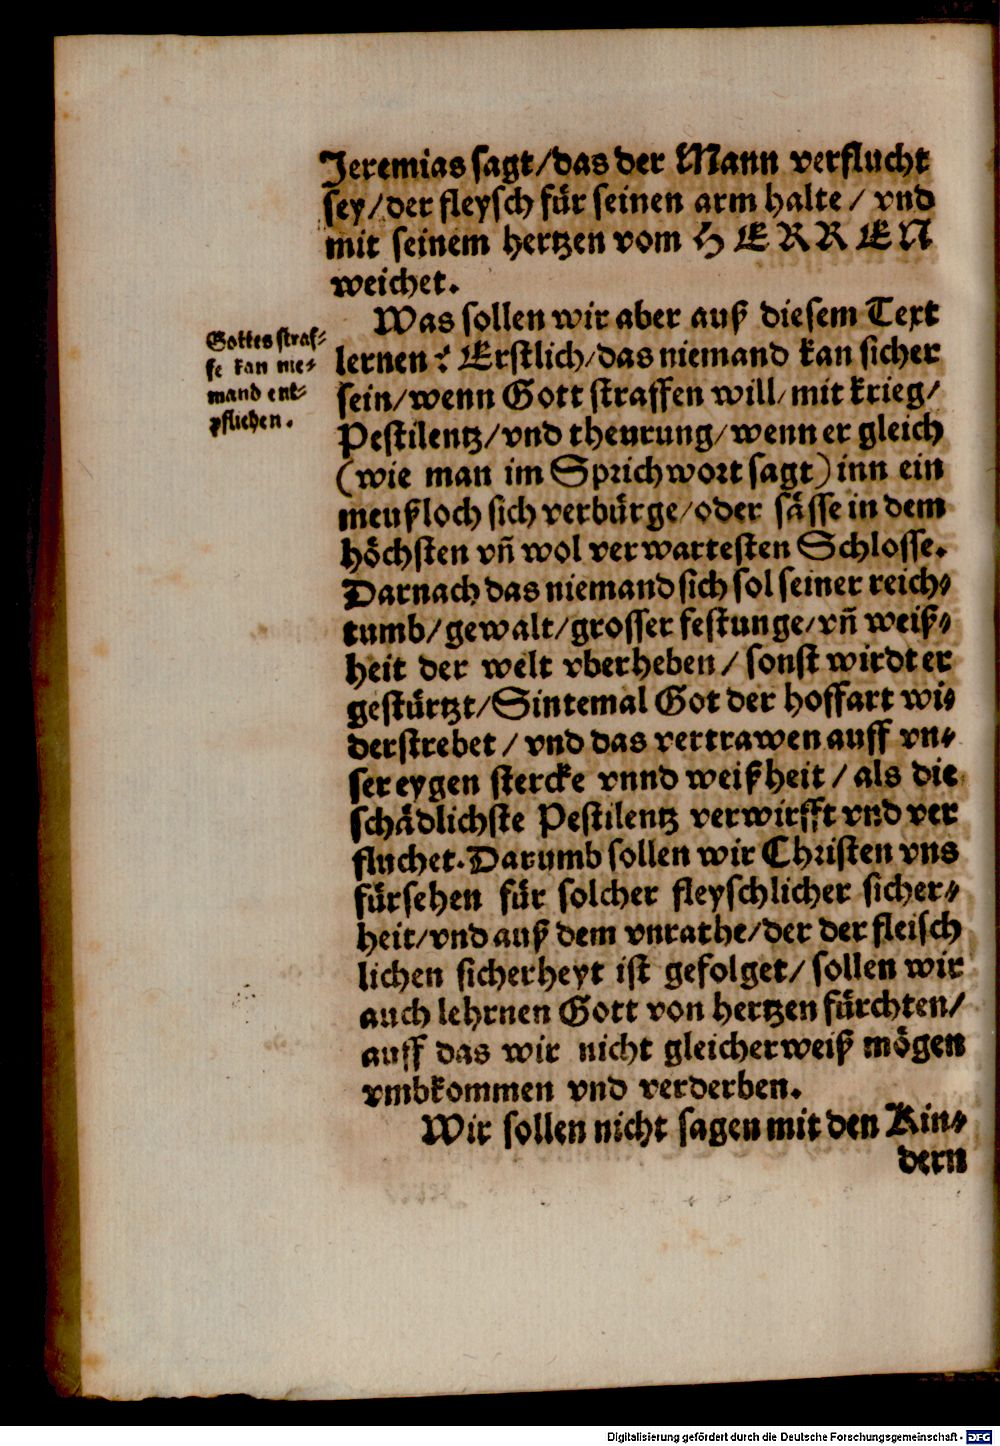 Jeremias sagt/das der Mann verflucht
sey/der fleysch für seinen arm halte/ vnd
mit seinem hertzen vom HERREN
weichet.
Gottes straf-
fe kan nie-
mand ent-
pfliehen.
Was sollen wir aber auß diesem Text
lernen? Erstlich/das niemand kan sicher
sein/wenn Gott straffen will/mit krieg/
Pestilentz/vnd theurung/wenn er gleich
(wie man im Sprichwort sagt) inn ein
meußloch sich verbürge/oder sässe in dem
höchsten vñ wol verwartesten Schlosse.
Darnach das niemand sich sol seiner reich-
tumb/gewalt/grosser festunge/vñ weiß-
heit der welt vberheben/ sonst wirdt er
gestürtzt/Sintemal Got der hoffart wi-
derstrebet/ vnd das vertrawen auff vn-
ser eygen stercke vnnd weißheit/ als die
schädlichste Pestilentz verwirfft vnd ver
fluchet. Darumb sollen wir Christen vns
fürsehen für solcher fleyschlicher sicher-
heit/vnd auß dem vnrathe/der der fleisch
lichen sicherheyt ist gefolget/ sollen wir
auch lehrnen Gott von hertzen fürchten/
auff das wir nicht gleicherweiß mögen
vmbkommen vnd verderben.
Wir sollen nicht sagen mit den Kin-
dern
Digitalisierung gefördert durch die Deutsche Forschungsgemeinschaft - DFG